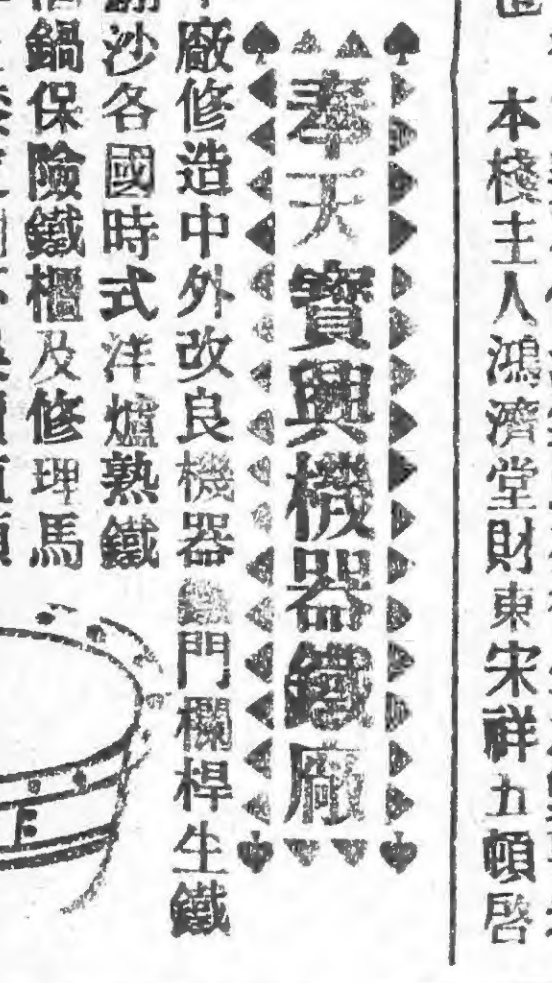 本棧主人鴻濟堂財東宋祥五頓啓
奉天寶興機器鐵廠
廠修造中外改良機器鐵門欄桿生鐵
翻沙各國時式洋爐熟鐵
鍋保險鐵櫃及修理馬